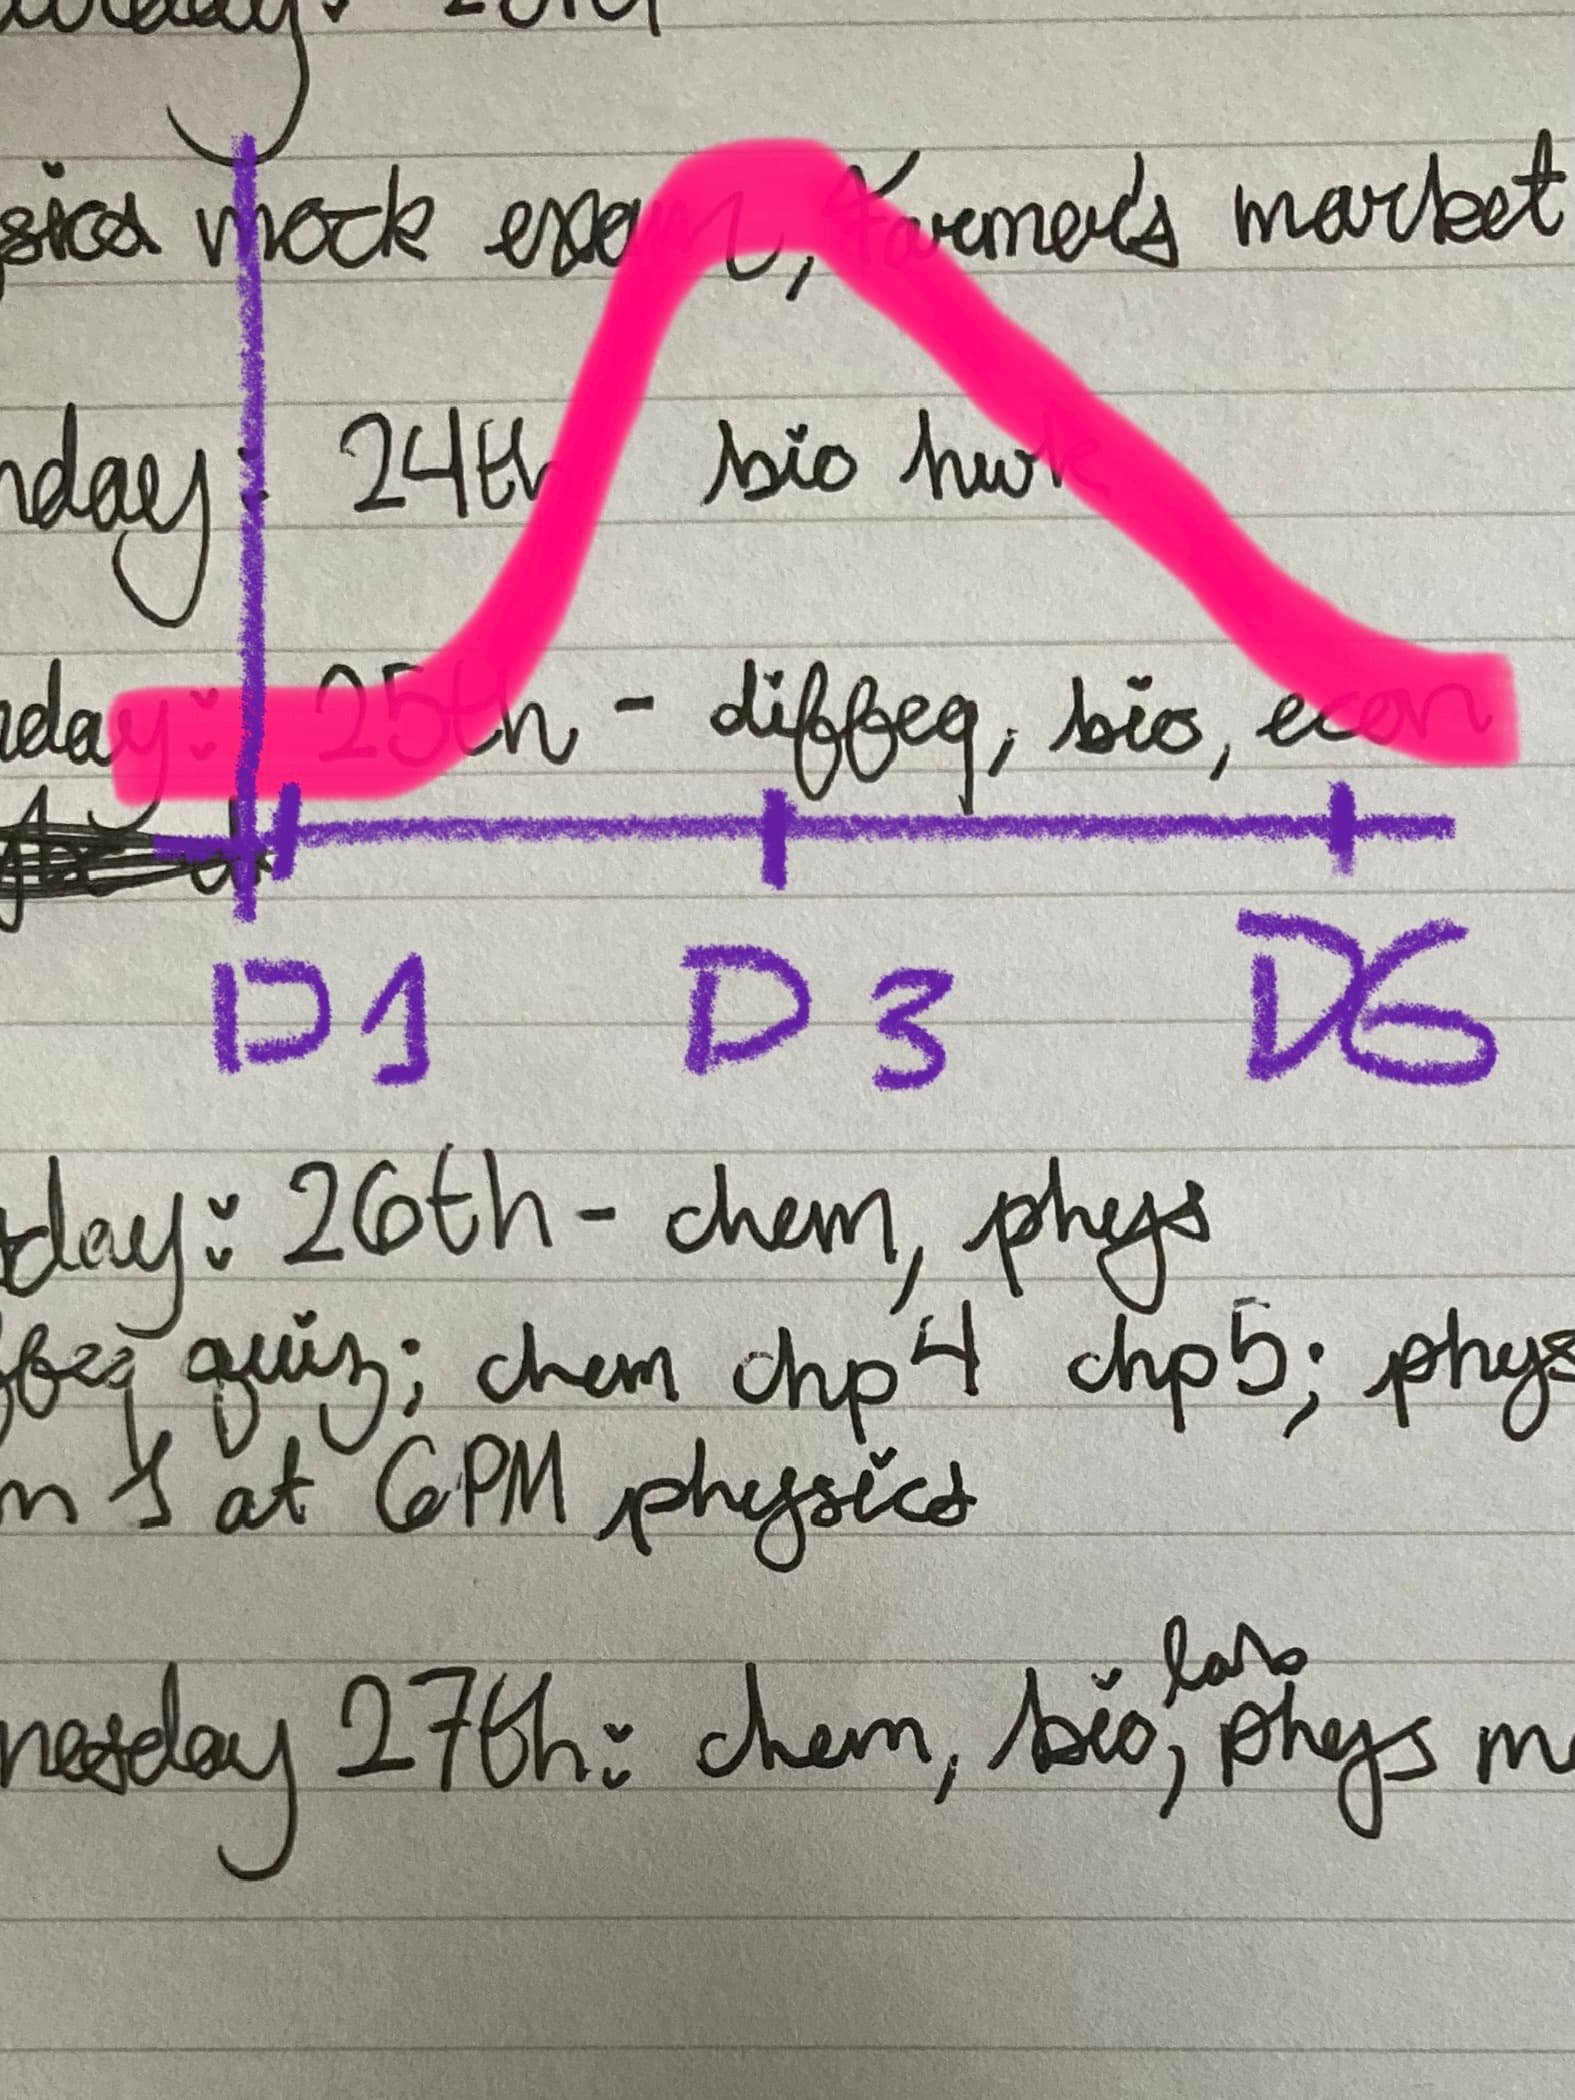 sics mock exam, farmer's market
nday: 24th bio hwk
day: 25th - diffeq, bio, econ
D1 D3 D6
day: 26th - chem, phys
ffeq quiz; chem chp 4 chp 5; phys
m 1 at 6PM physics
nesday 27th: chem, bio, lab, phys m